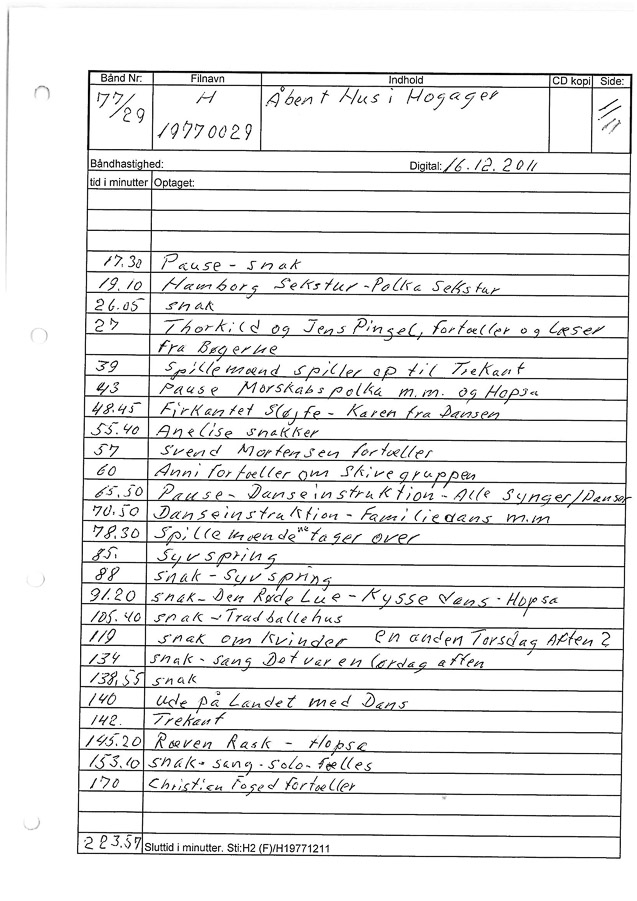 Bånd Nr: Filnavn Indhold CD kopi Side:
77/29 H Åbent Hus i Hogager
19770029
Båndhastighed: Digital: 16.12.2011
tid i minutter Optaget:
17.30 Pause - snak
19.10 Hamborg Sekstur - Polka Sekstur
26.05 snak
27 Thorkild og Jens Pingel, fortæller og Læser
fra Bøgerne
39 Spillemænd spiller op til Trekant
43 Pause Morskabspolka m.m. og Hopsa
48.45 Firkantet Sløjfe - Karen fra Dansen
55.40 Anelise snakker
57 Svend Mortensen fortæller
60 Anni fortæller om Skivegruppen
65.50 Pause - Danseinstruktion - Alle Synger/Danser
70.50 Danseinstruktion - Familiedans m.m
78.30 Spillemændene tager over
85. Syvspring
88 snak - Syvspring
91.20 snak - Den Røde Lue - Kyssedans - Hopsa
105.40 snak - Tradballehus
119 snak om Kvinder en anden Torsdag Aften 2
134 snak - sang Det var en lørdag aften
138.55 snak
140 ude på Landet med Dans
142. Trekant
145.20 Ræven Rask - Hopsa
153.10 snak - sang - solo - fælles
170 Christian Foged fortæller
223.57 Sluttid i minutter. Sti:H2 (F)/H19771211